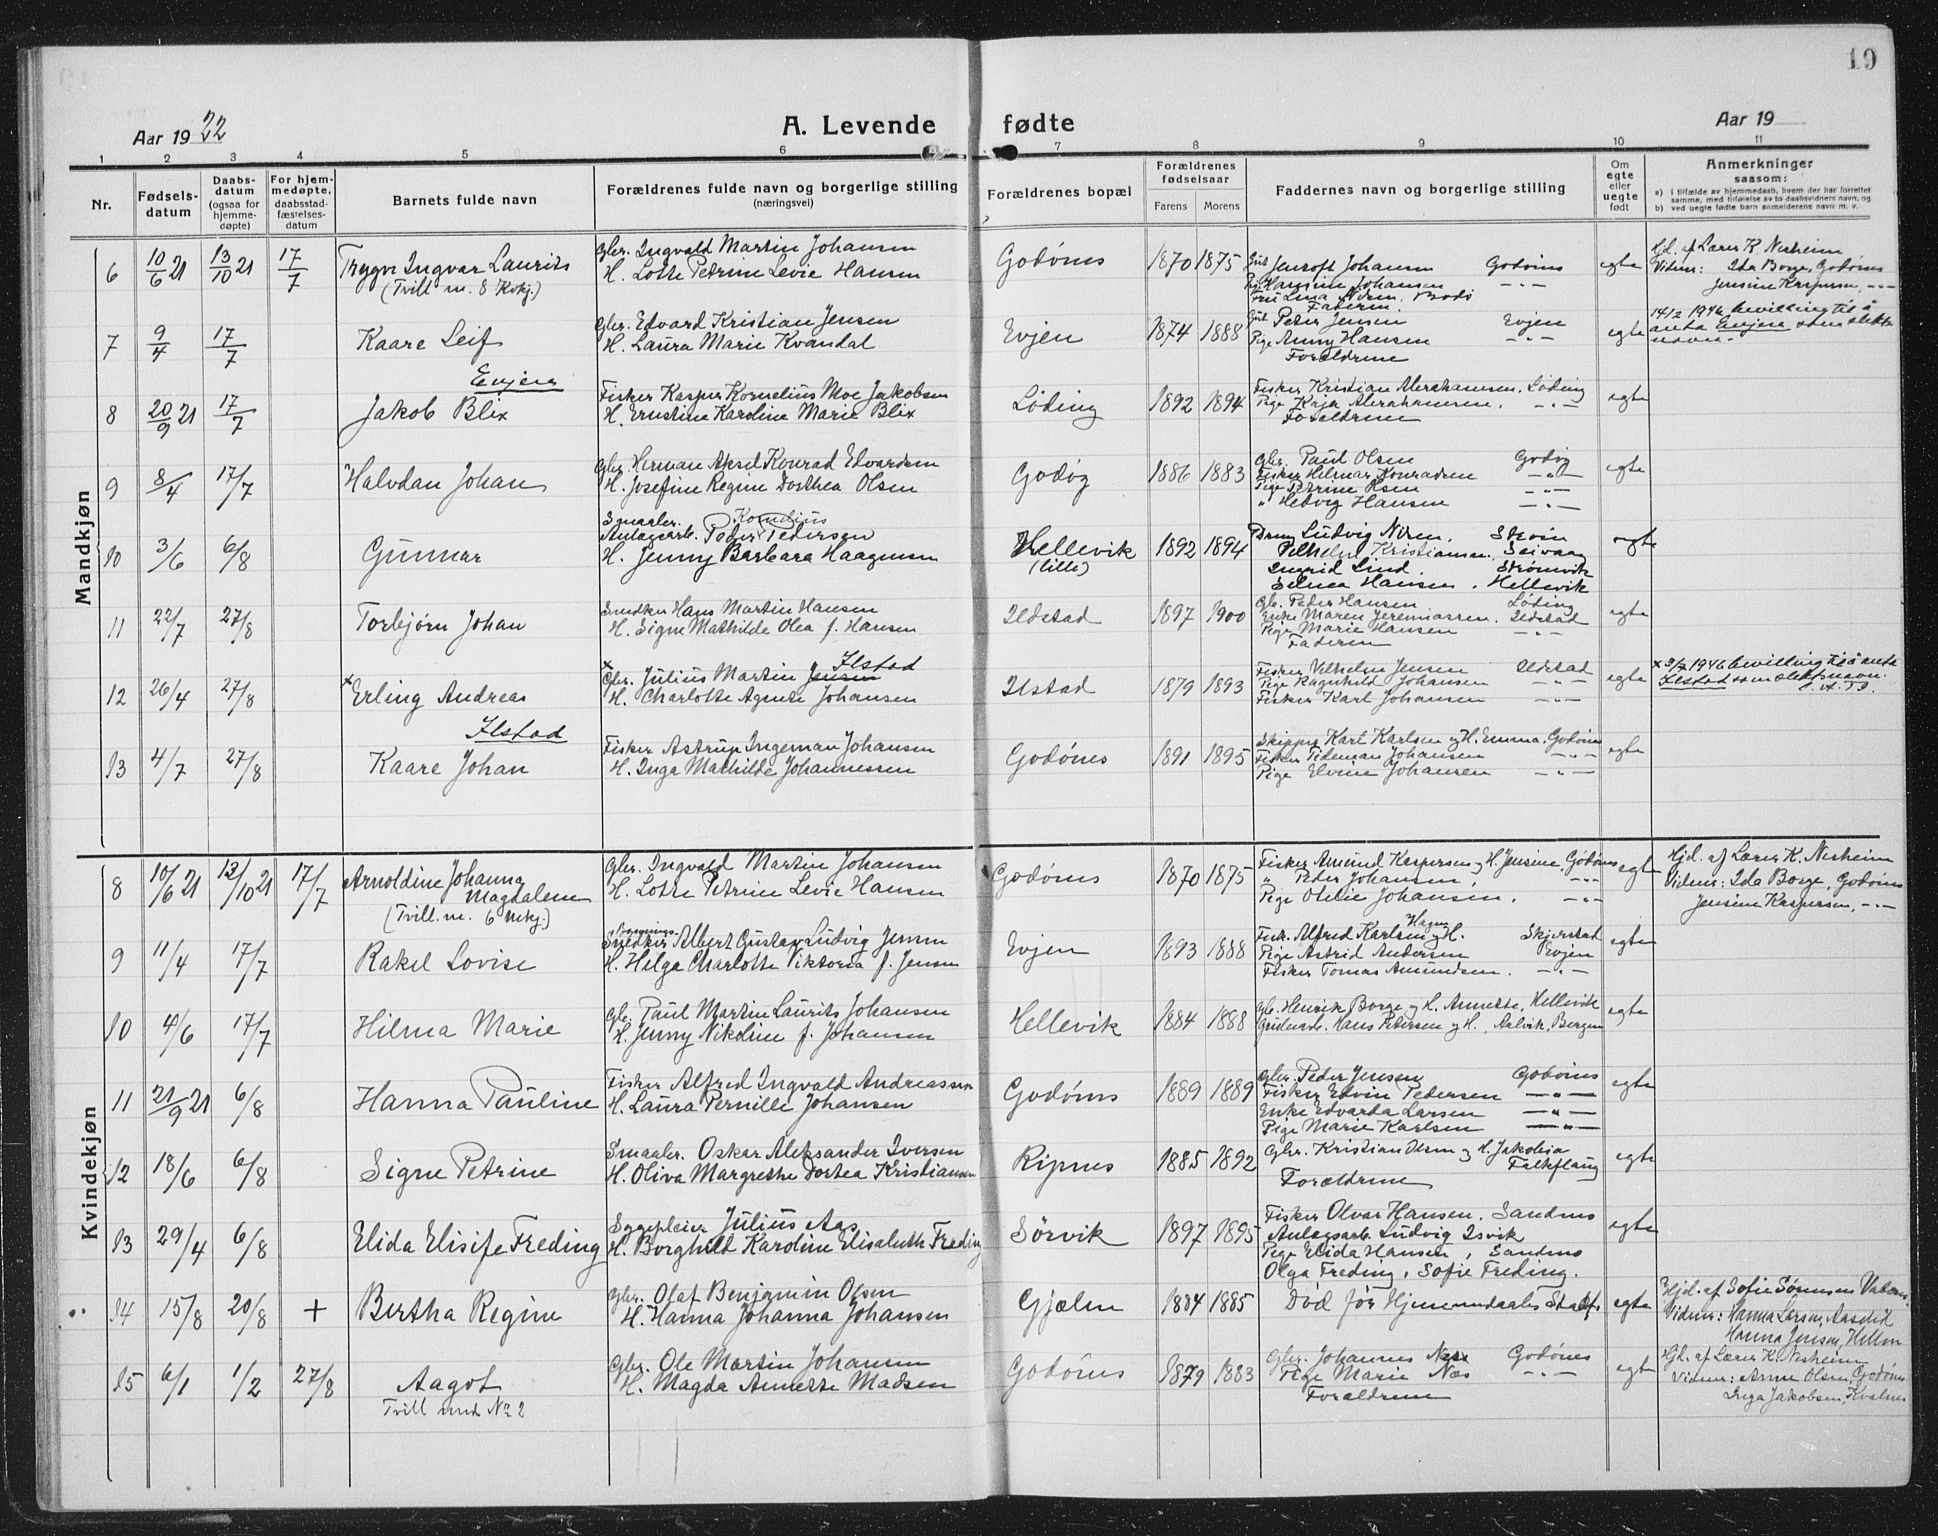 19
Aar 1922
A. Levende fødte
Aar 19
1 2 3 4 5 6 7 8 9 10 11
Nr.
Fødsels-
datum
Daabs-
datum
(ogsaa for
hjemme-
døpte)
For hjem-
medøpte,
daabsstad-
fæstelses-
datum
Barnets fulde navn
Forældrenes fulde navn og borgerlige stilling
(næringsvei)
Forældrenes bopæl
Forældrenes
fødselsaar
Farens Morens
Faddernes navn og borgerlige stilling
Om
egte
eller
uegte
født
Anmerkninger
saasom:
a) i tilfælde av hjemmedaab, hvem der har forrettet
samme, med tilføielse av to daabsvidners navn, og
b) ved uegte fødte barn anmelderens navn m. v.
Mandkjøn
6 10/6 21 13/10 21 17/7
Trygve Ingvar Laurits
(Tvill. m. 8 Kvkj.)
Gbr. Ingvald Martin Johansen
H. Lotte Petrine Levie Hansen
Godønes 1870 1875
Gut Jentoft Johansen Godønes
Pi. Hansine Johansen -"-
Fru Lina Niren, Bodø
Faderen
egte
Hjd. af Lærer K. Nesheim
Vidner: Ida Borge, Godønes
Jensine Kaspersen, -"-
7 9/4 17/7
Kaare Leif
Evjen
Gbr. Edvard Kristian Jensen
H. Laura Marie Kvandal
Evjen 1874 1888
Gut Peter Jensen Evjen
Pige Anny Hansen -"-
Forældrene
egte
14/2 1946 bevilling til å
anta Evjen som slekts-
navn.
8 20/9 21 17/7
Jakob Blix
Fisker Kasper Kornelius Moe Jakobsen
H. Ernstine Karoline Marie Blix
Løding 1892 1894
Fisker Kristian Abrahamsen, Løding
Pige Kaja Abrahamsen, -"-
Forældrene
egte
9 8/4 17/7
Halvdan Johan
Gbr. Herman Aksel Konrad Edvardsen
H. Josefine Regine Dorthea Olsen
Godøy 1886 1883
Gbr. Paul Olsen Godøy
Fisker Hilmar Konradsen -"-
Pige Petrine Olsen -"-
" Hedvig Hansen -"-
egte
10 3/6 6/8
Gunnar
Smaabr. Kornelius
Anlægsarb. Peder Pedersen
H. Jenny Barbara Haagensen
Hellevik
(lille)
1892 1894
Ludvig Niren,
Kristiansen, Seivaag
Ingrid Lind, Strømvik
Selma Hansen, Hellevik
egte
11 22/7 27/8
Torbjørn Johan
Snedker Hans Martin Hansen
H. Signe Mathilde Olea f. Hansen
Ildstad 1897 1900
Gb. Peder Hansen Løding
Enke Maren Jeremiassen, Ildstad
Pige Marie Hansen -"-
Faderen
egte
12 26/4 27/8
× Erling Andreas
Ilstad
× Ilstad
Gbr. Julius Martin Jensen
H. Charlotte Agnete Johansen
Ilstad 1879 1893
Fisker Vilhelm Jensen Ildstad
Pige Ragnhild Johansen -"-
Fisker Karl Johansen -"-
egte
× 3/7 1946 bevilling til å anta
Ilstad som slektsnavn.
13 4/7 27/8
Kaare Johan
Fisker Astrup Ingeman Johansen
H. Inga Mathilde Johannessen
Godønes 1891 1895
Skipper Karl Karlsen og H. Emma, Godønes
Fisker Tideman Johansen -"-
Pige Elvine Johansen -"-
egte
Kvindekjøn
8 10/6 21 13/10 21 17/7
Arnoldine Johanna
Magdalene
(Tvill. m. 6 Mkj.)
Gbr. Ingvald Martin Johansen
H. Lotte Petrine Levie Hansen
Godønes 1870 1875
Fisker Amund Kaspersen og H. Jensine, Godønes
" Peder Johansen, -"-
Pige Otelie Johansen, -"-
egte
Hjd. af Lærer K. Nesheim
Vidner: Ida Borge, Godønes
Jensine Kaspersen, -"-
9 11/4 17/7
Rakel Lovise
Snedker Albert Gustav Ludvig Jensen
H. Helga Charlotte Viktoria f. Jensen
Evjen 1893 1888
Fisk. Alfred Karlsen og H. Skjerstad
Pige Astrid Andersen Evjen
Fisker Tomas Amundsen. -"-
egte
10 4/6 17/7
Hilma Marie
Gb. Paul Martin Laurits Johansen
H. Jenny Nikoline f. Johansen
Hellevik 1884 1888
Gb. Henrik Borge og H. Annette, Hellevik
Hans Petersen og H., Aalvik, Bergen
egte
11 21/9 21 6/8
Hanna Pauline
Fisker Alfred Ingvald Andreassen
H. Laura Pernille Johansen
Godønes 1889 1889
Gbr. Peder Jensen Godønes
Fisker Edvin Pedersen -"-
Enke Edvarda Larsen -"-
Pige Marie Karlsen -"-
egte
12 18/6 6/8
Signe Petrine
Smaabr. Oskar Aleksander Iversen
H. Oliva Margrethe Dortea Kristiansen
Ripnes 1885 1892
Gbr. Kristian Olsen og H. Jakobia
Falkflaug
Forældrene
egte
13 29/4 6/8
Elida Elisife Freding
Sygepleier Julius Aas
H. Borghild Karoline Elisabeth Freding
Sørvik 1897 1895
Fisker Olvar Hansen, Sandnes
Anlægsarb. Ludvig Isvik
Pige Elida Hansen, Sandnes
Olga Freding, Sofie Freding.
egte
14 15/8 20/8 +
Bertha Regine
Gbr. Olaf Benjamin Olsen
H. Hanna Johanna Johansen
Gjælen 1884 1885
Død før Hjemmedaabs Stadf.
egte
Hjd. af Sofie Sørensen
Vidner: Hanna Larsen, Aaselid
Hanna Jensen,
15 6/1 1/2 27/8
Aagot
Tvill med No 2
Gbr. Ole Martin Johansen
H. Magda Annette Madsen
Godønes 1879 1883
Gbr. Johannes Næs Godønes
Pige Marie Næs -"-
Forældrene
egte
Hjd. af Lærer K. Nesheim
Vidner: Anne Olsen, Godønes
Inga Jakobsen, Kvalnes